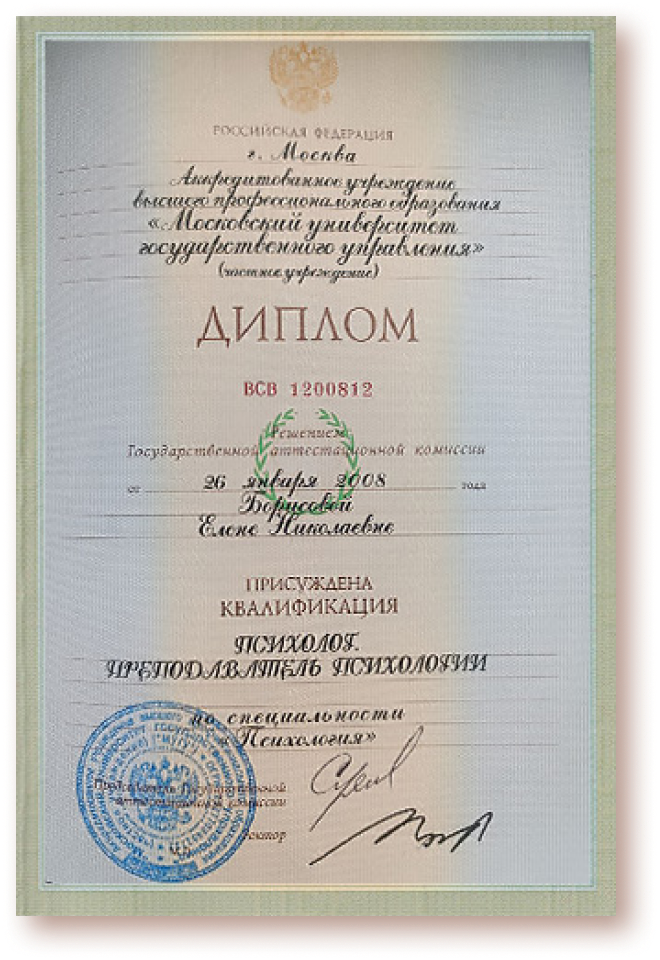 РОССИЙСКАЯ ФЕДЕРАЦИЯ
г. Москва
Аккредитованное учреждение
высшего профессионального образования
«Московский университет
государственного управления»
(частное учреждение)
ДИПЛОМ
ВСВ 1200812
Решением
Государственной аттестационной комиссии
от 26 января 2008 года
Борисовой
Елене Николаевне
ПРИСУЖДЕНА
КВАЛИФИКАЦИЯ
ПСИХОЛОГ.
ПРЕПОДАВАТЕЛЬ ПСИХОЛОГИИ
по специальности
«Психология»
Председатель Государственной
аттестационной комиссии
Ректор